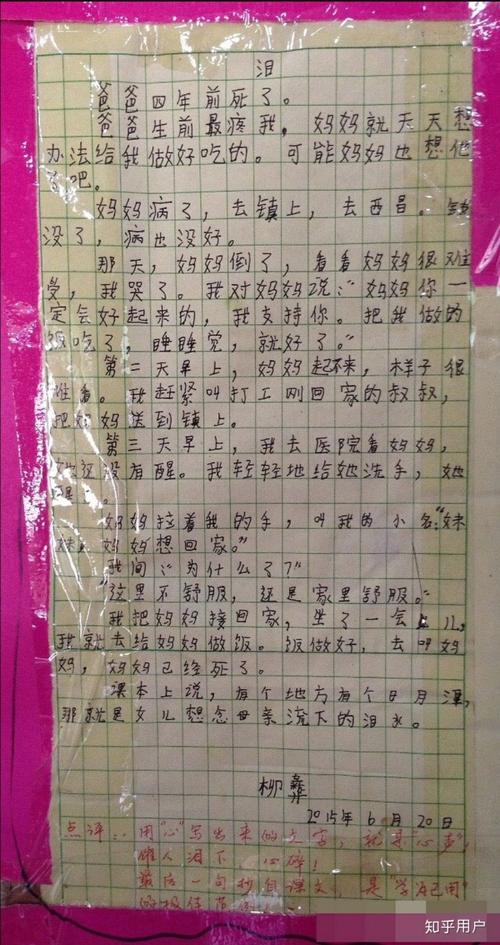 泪
爸爸四年前死了。
爸爸生前最疼我,妈妈就天天想
办法给我做好吃的。可能妈妈也想他
了吧。
妈妈病了,去镇上,去西昌。钱
没了,病也没好。
那天,妈妈倒了,看看妈妈很难
受,我哭了。我对妈妈说:“妈妈你一
定会好起来的,我支持你。把我做的
饭吃了,睡睡觉,就好了。”
第二天早上,妈妈起不来,样子很
难看。我赶紧叫打工刚回家的叔叔,
把妈妈送到镇上。
第三天早上,我去医院看妈妈,
她还没有醒。我轻轻地给她洗手,她
醒了。
妈妈拉着我的手,叫我的小名:“妹
妹,妈妈想回家。”
我问:“为什么了?”
“这里不舒服,还是家里舒服。”
我把妈妈接回家,坐了一会儿,
我就去给妈妈做饭。饭做好,去叫妈
妈,妈妈已经死了。
课本上说,有个地方有个日月潭,
那就是女儿想念母亲流下的泪水。
柳彝
2015年6月20日
点评:用“心”写出来的文字,就是“心声”,
催人泪下、心碎!
最后一句抄自课文,是“学为己用”
的极佳范例!
知乎用户